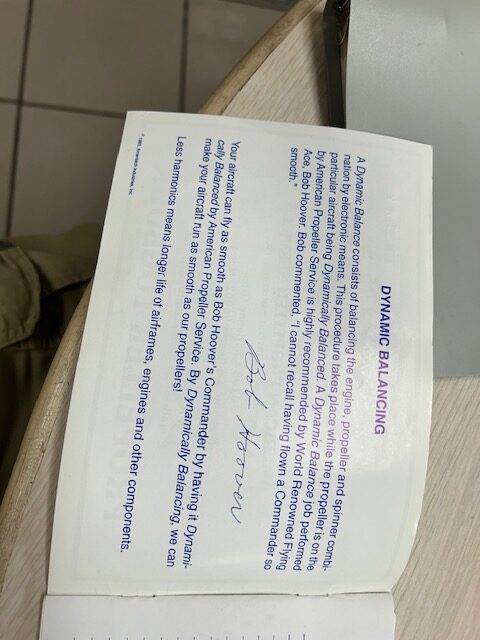 DYNAMIC BALANCING
A Dynamic Balance consists of balancing the engine, propeller and spinner combi-
nation by electronic means. This procedure takes place while the propeller is on the
particular aircraft being Dynamically Balanced. A Dynamic Balance job performed
by American Propeller Service is highly recommended by World Renowned Flying
Ace, Bob Hoover. Bob commented, "I cannot recall having flown a Commander so
smooth."
Bob Hoover
Your aircraft can fly as smooth as Bob Hoover's Commander by having it Dynami-
cally Balanced by American Propeller Service. By Dynamically Balancing, we can
make your aircraft run as smooth as our propellers!
Less harmonics means longer life of airframes, engines and other components.